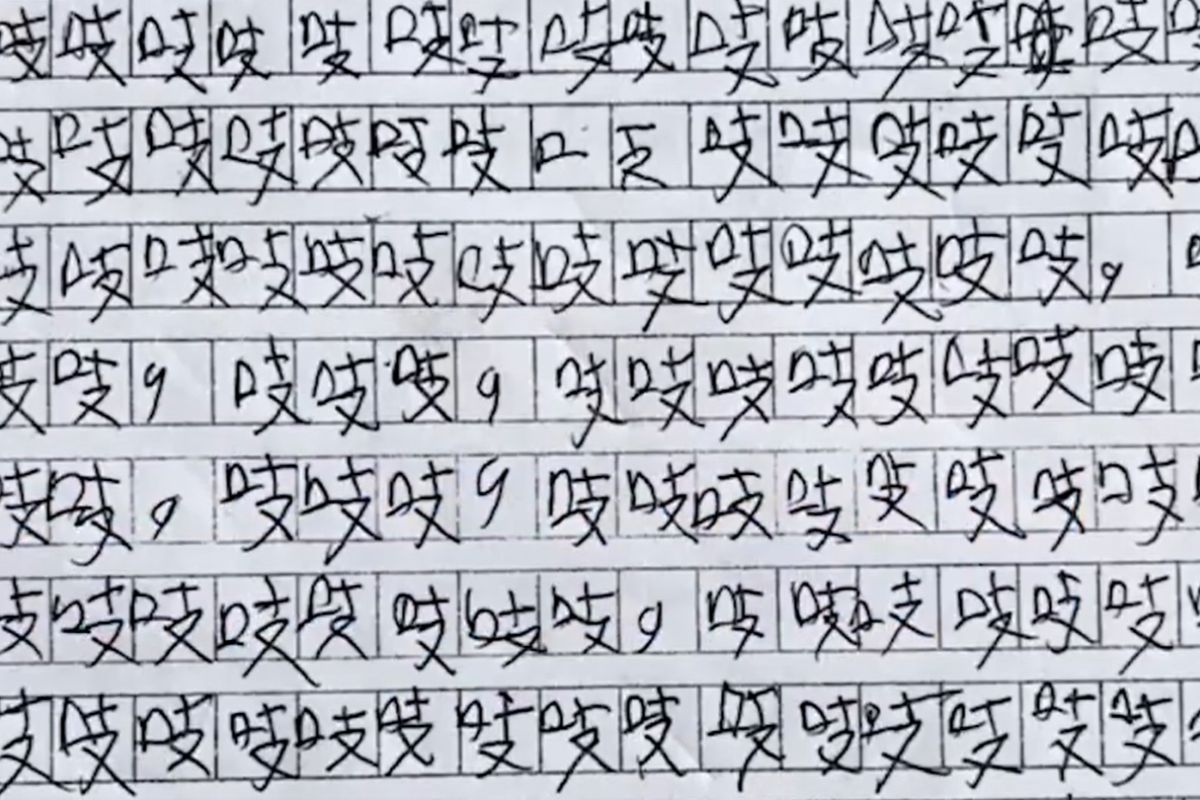 吱吱吱吱吱吱吱吱吱吱吱吱吱吱
吱吱吱吱吱吱吱口支吱吱吱吱吱吱
吱吱吱吱吱吱吱吱吱吱吱吱吱吱，
吱吱，吱吱吱，吱吱吱吱吱吱吱吱
吱吱，吱吱吱，吱吱吱吱吱吱吱吱
吱吱吱吱吱吱吱吱，吱吱吱吱吱吱
吱吱吱吱吱吱吱吱吱吱吱吱吱吱吱